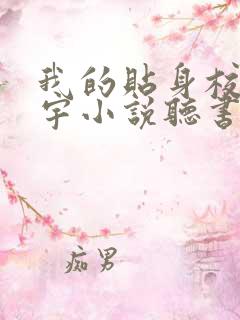 我的貼身校
宇小說聽書
痴男